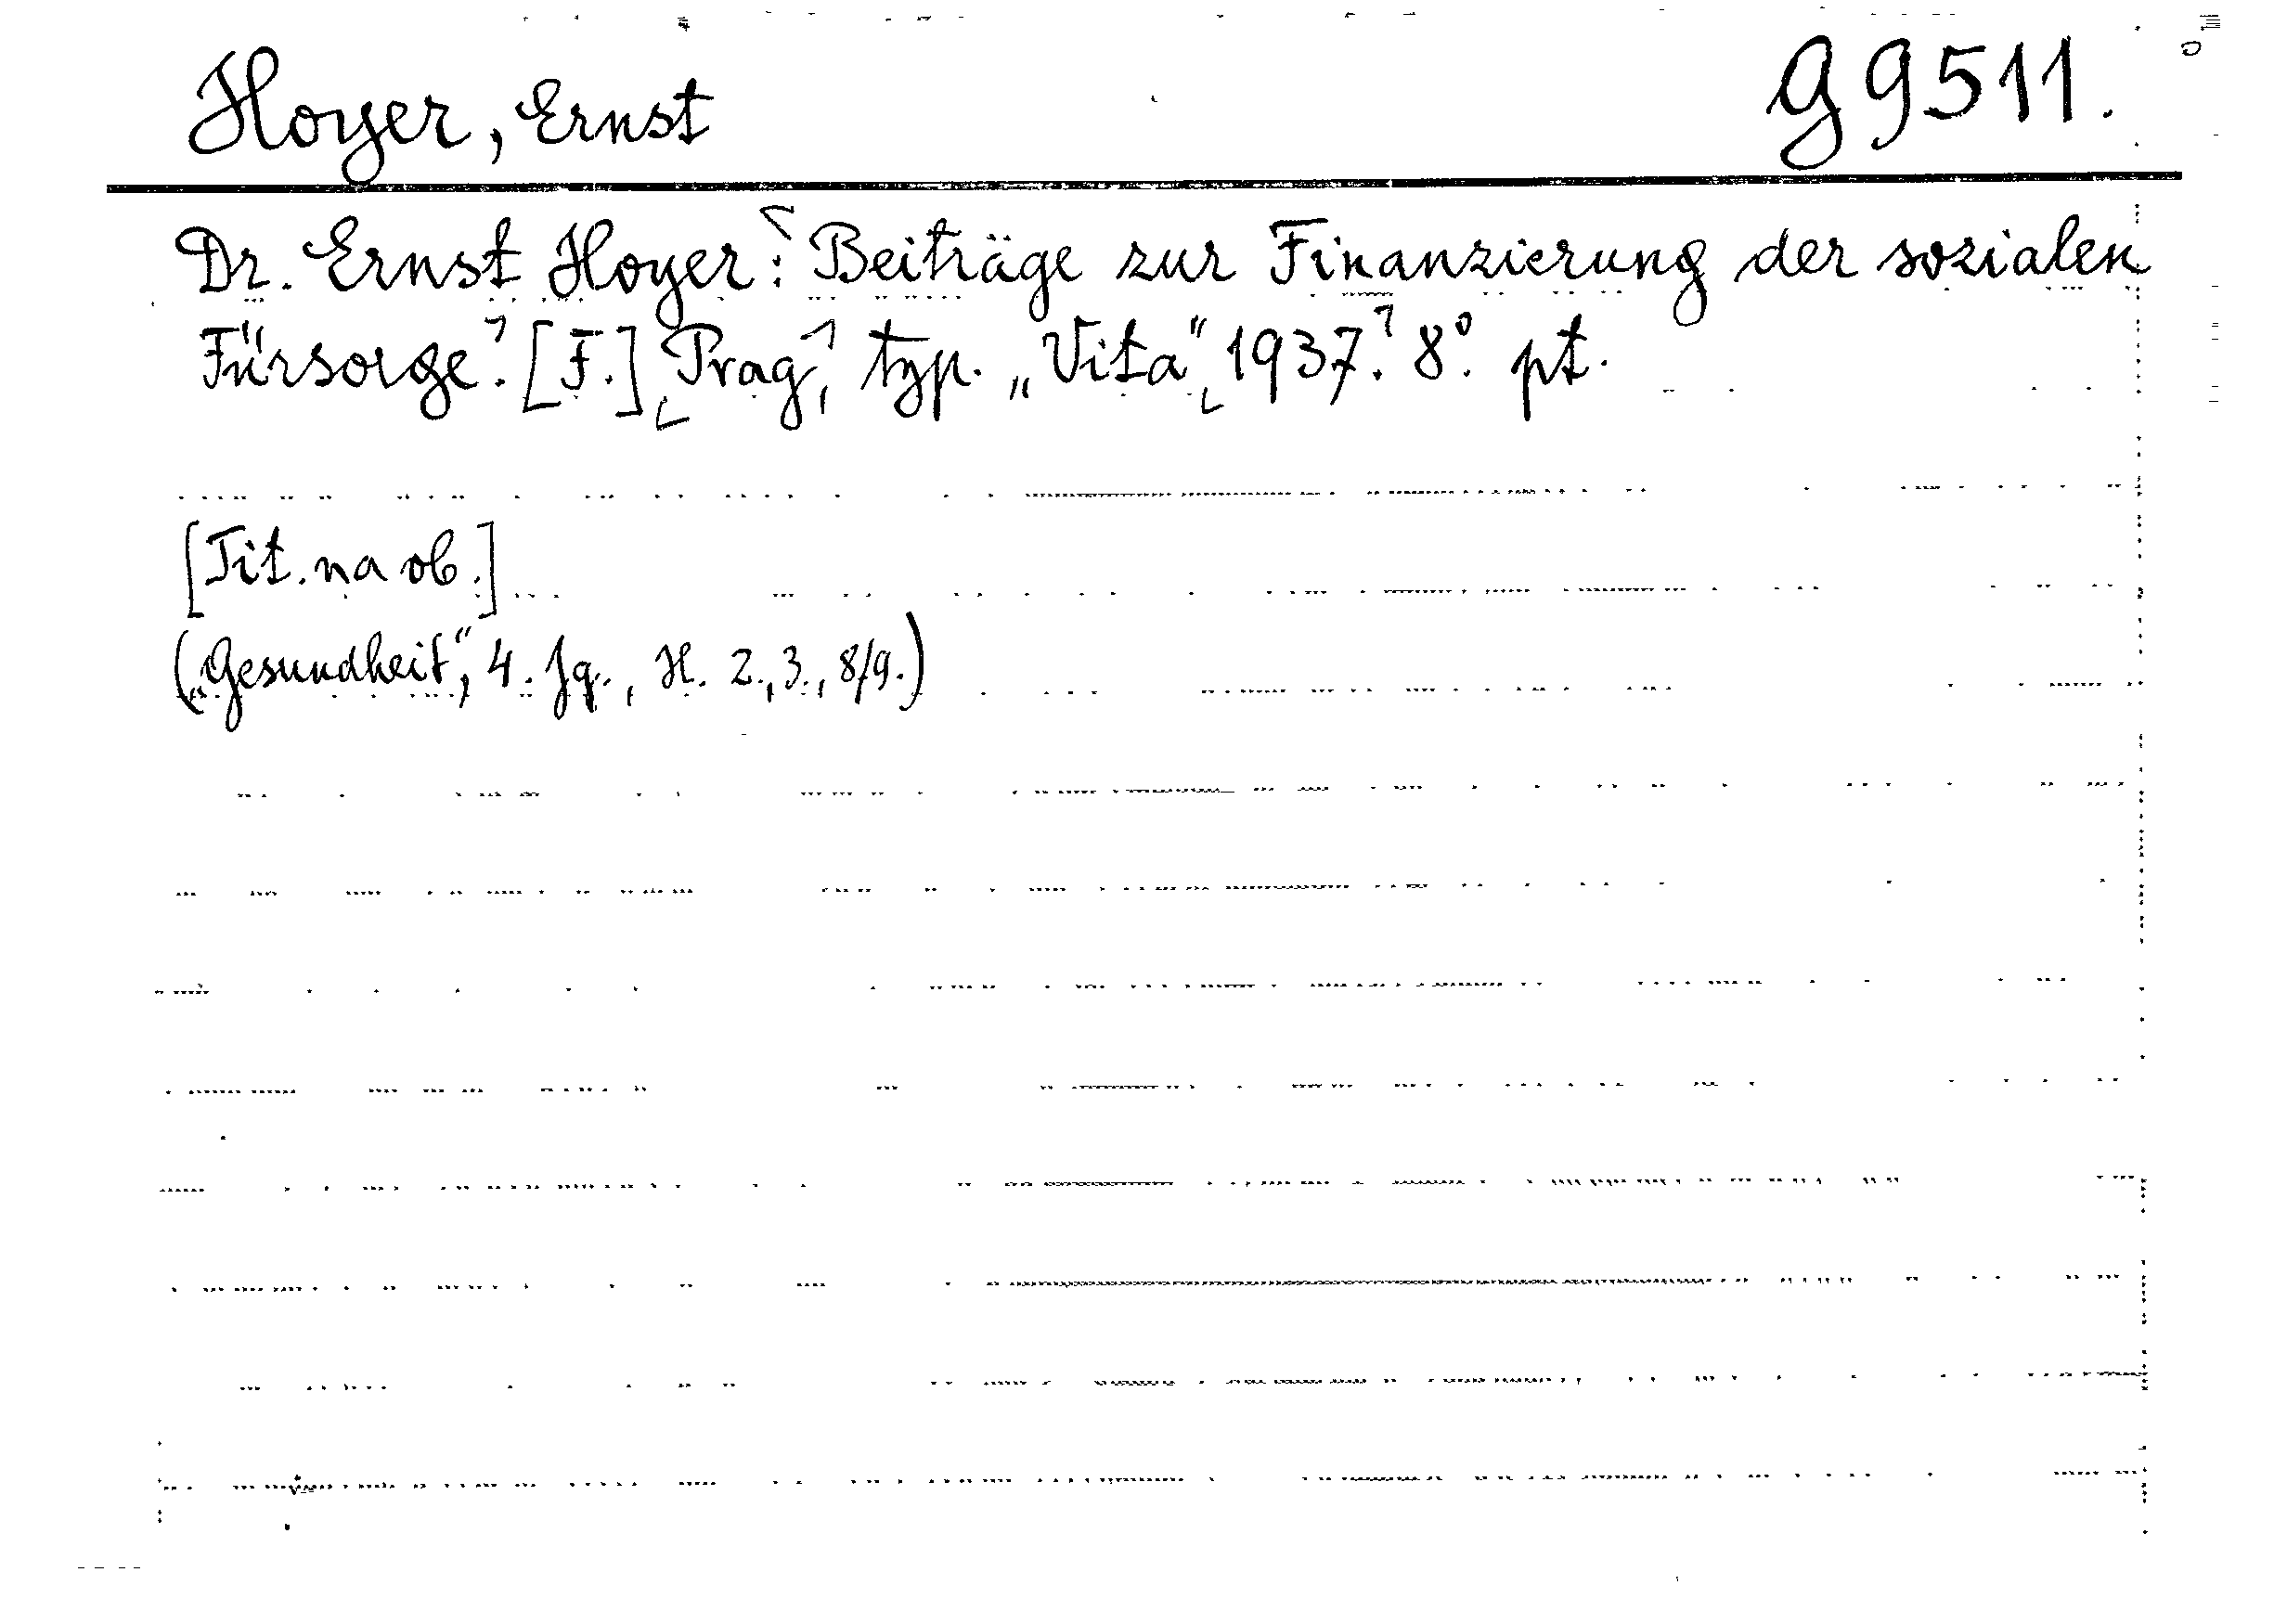 Hoyer, Ernst
G 9511.
Dr. Ernst Hoyer: Beiträge zur Finanzierung der sozialen
Fürsorge. [F.] Prag, typ. „Vita“ 1937. 8°. pt.
[Tit. na ob.]
(„Gesundheit“, 4. Jg., H. 2., 3., 8/9.)